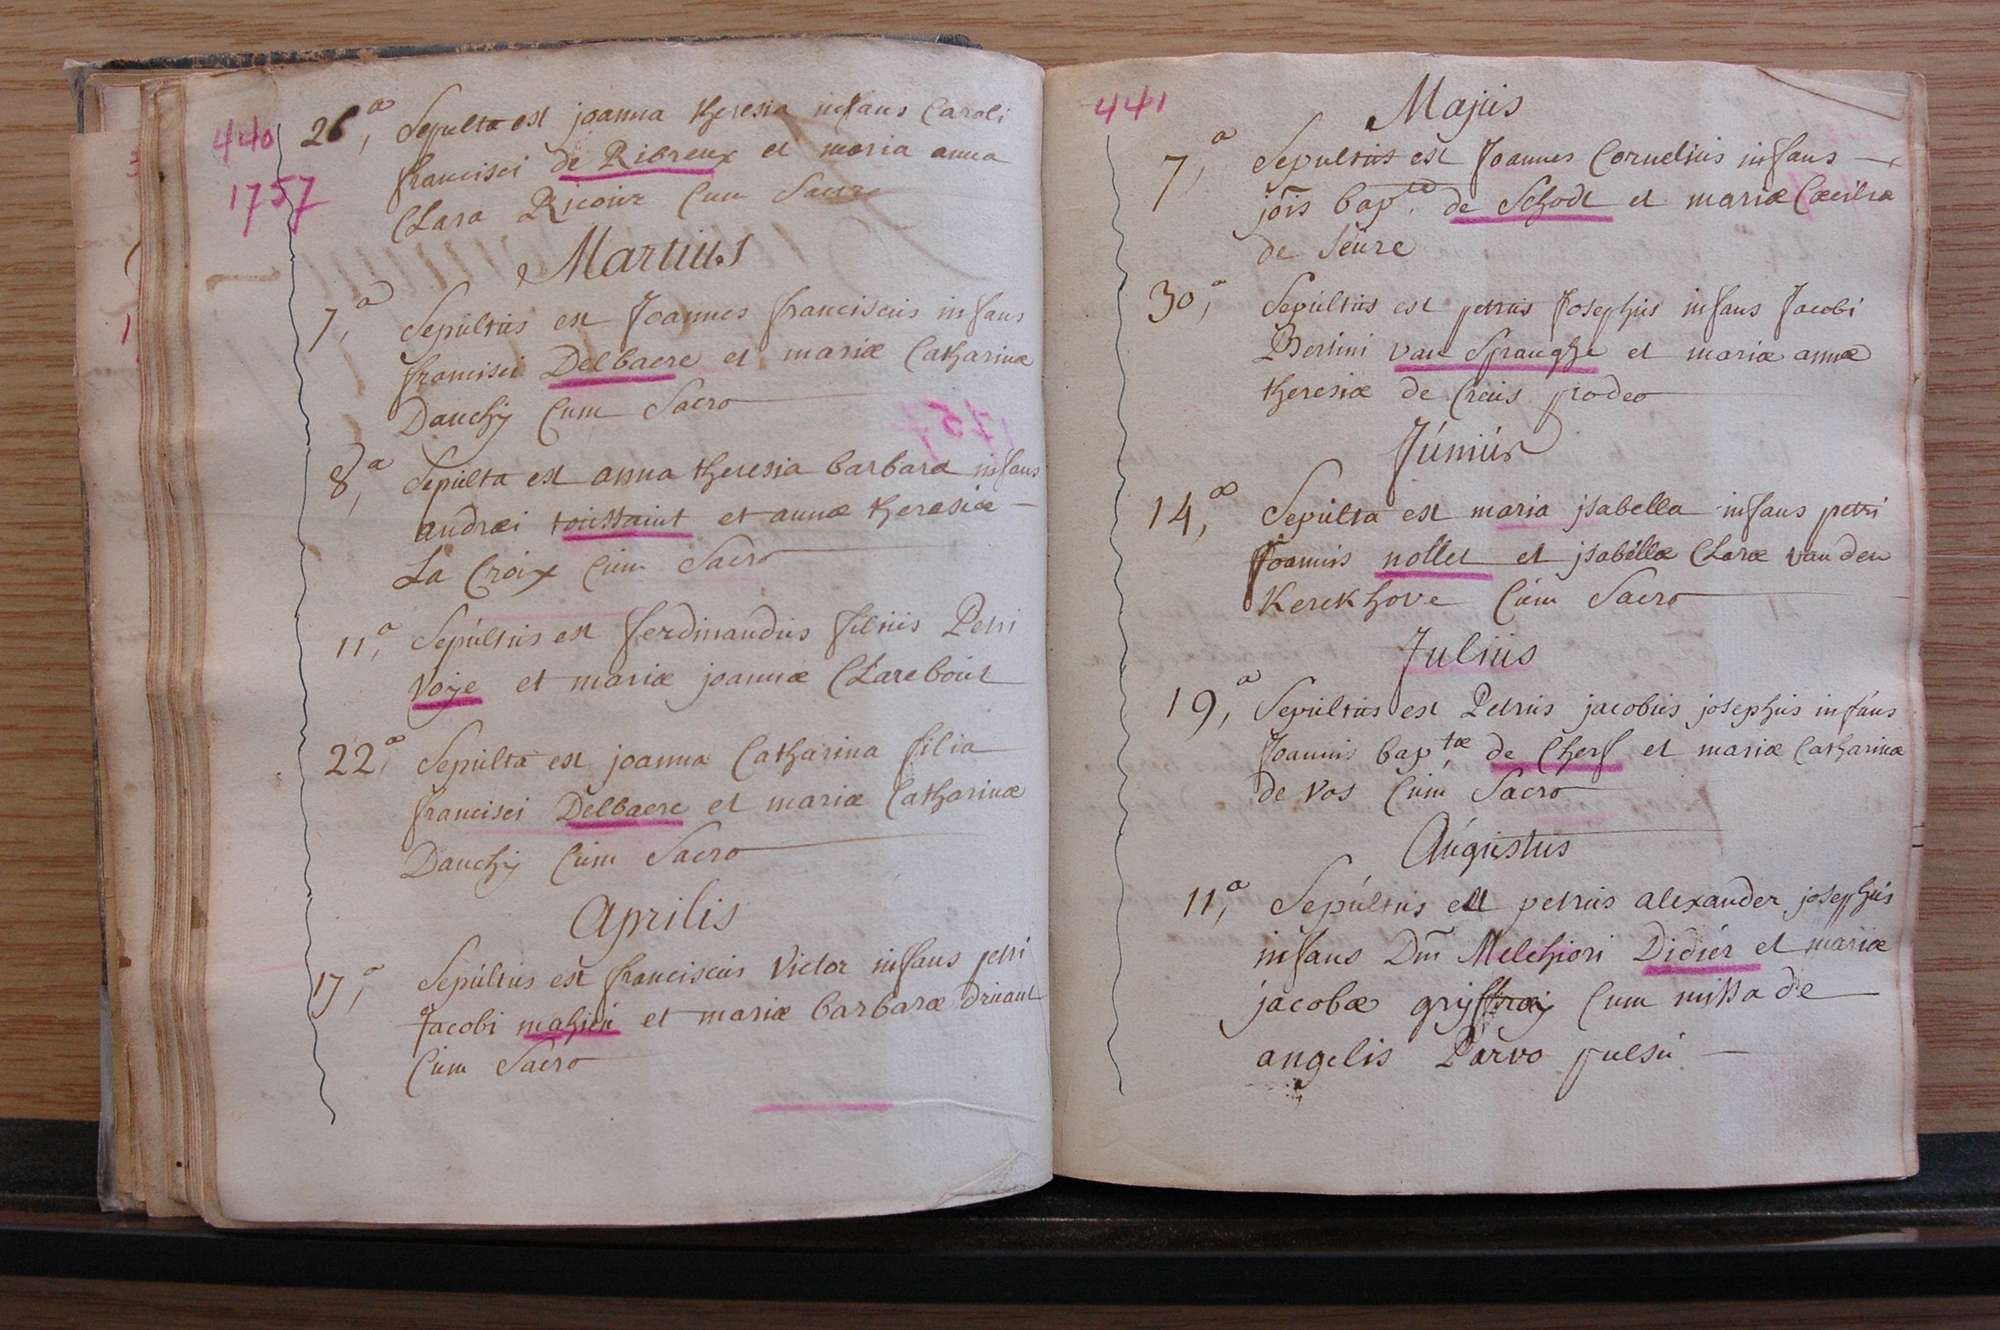 440
1757
26,a Sepulta est joanna theresia infans Caroli
francisci de Ribreux et maria anna
Clara Ricour Cum Sacro
Martius
7,a Sepultus est Joannes franciscus infans
francisci Delbaere et mariæ Catharinæ
Dauchij Cum Sacro
8,a Sepulta est anna theresia barbara infans
andræi toussaint et annæ theresiæ —
La Croix Cum Sacro
11,a Sepultus est ferdinandus filius Petri
Voije et mariæ joannæ Clarebout
22,a Sepulta est joanna Catharina filia
francisci Delbaere et mariæ Catharinæ
Dauchij Cum Sacro
Aprilis
17,a Sepultus est franciscus Victor infans petri
Jacobi mahieu et mariæ barbaræ druant
Cum Sacro
441
Majus
7,a Sepultus est Joannes Cornelius infans —
jõis bap,tæ de Schodt et mariæ Cæcilia
de seure
30,a Sepultus est petrus Josephus infans Jacobi
Bertini van Spranghe et mariæ annæ
theresiæ de Creus prodeo
Június
14,a Sepulta est maria jsabella infans petri
Joannis nollet et jsabellæ Claræ vanden
Kerckhove Cum Sacro
Julius
19,a Sepultus est Petrus jacobus josephus infans
Joannis bap,tæ de Cherf et mariæ Catharinæ
de Vos Cum Sacro
Augustus
11,a Sepultus est petrus alexander josephus
infans Dm̃ Melchiori Didiér et mariæ
jacobæ Cum missa de
angelis Parvo pulsu —